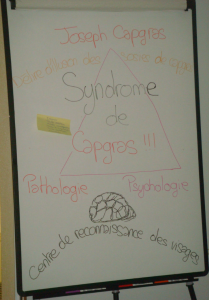 Joseph Capgras
Syndrome
de
Capgras !!!
Pathologie
Psychologie
Centre de reconnaissance des visages